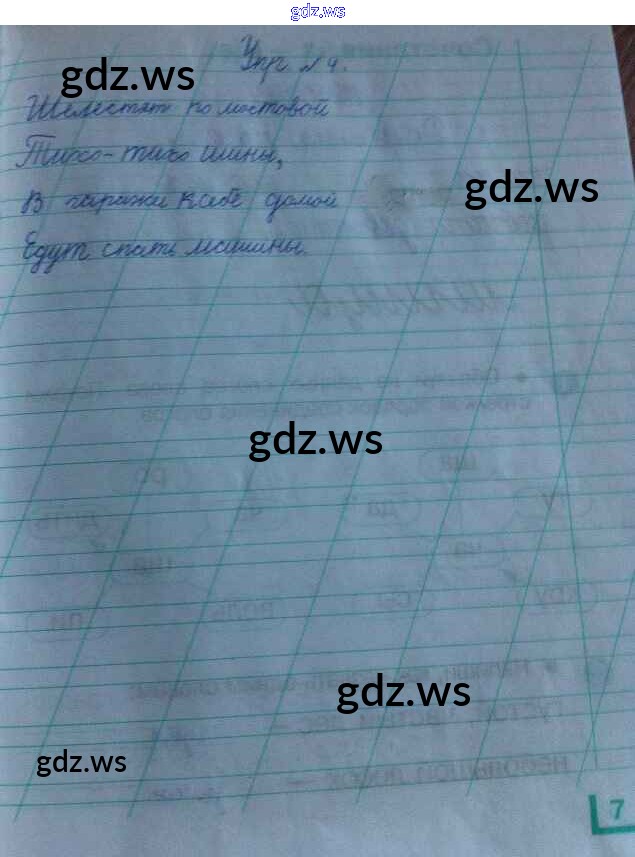 gdz.ws
Упр №4.
gdz.ws
Шелестят по мостовой
Тихо-тихо шины,
gdz.ws
В гаражи к себе домой
Едут спать машины.
gdz.ws
gdz.ws
gdz.ws
7